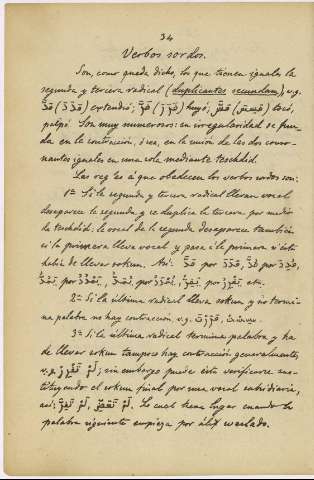 34
Verbos sordos.
Son, como queda dicho, los que tienen iguales la
segunda y tercera radical (duplicantes secundam), v.g.
مَدَّ (مَدَدَ) extendió; فَرَّ (فَرَرَ) huyó; مَسَّ (مَسِسَ) tocó,
palpó. Son muy numerosos: su irregularidad se fun-
da en la contracción, ó sea, en la union de las dos conso-
nantes iguales en una sola mediante texdid.
Las reglas á que obedecen los verbos sordos son:
1ª Si la segunda y tercera radical llevan vocal
desaparece la segunda y se duplica la tercera por medio
del texdid; la vocal de la segunda desaparece tambien
si la primera lleva vocal y pasa á la primera si ésta
había de llevar sokun. Así: مَدَّ por مَدَدَ, مُدَّ por مُدِدَ,
يَمُدُّ por يَمْدُدُ, por يَفِرُّ, por يَفْرِرُ, etc.
2ª Si la última radical lleva sokun y no termi-
na palabra no hay contracción, v.g. فَرَرْتَ,
3ª Si la última radical termina palabra y ha
de llevar sokun tampoco hay contracción generalmente,
v.g. لَمْ يَفْرِرْ; sin embargo puede ésta verificarse sus-
tituyendo el sokun final por una vocal subsidiaria,
así: لَمْ لَمْ يَفِرَّ. Lo cual tiene lugar cuando la
palabra siguiente empieza por álif waslado.